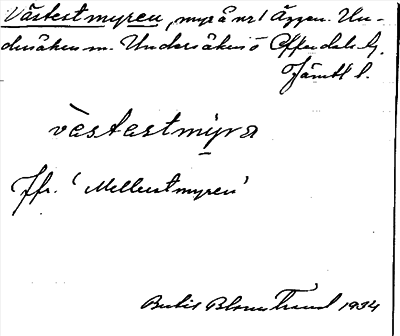 Västestmyren, myrå nr 1 Äggen. Un-
dersåkers m. Undersåkers o Offerdals tg.
Jämtl l.
västestmyra
Jfr. 'Mellestmyren'
Bertil Blomstrand 1934